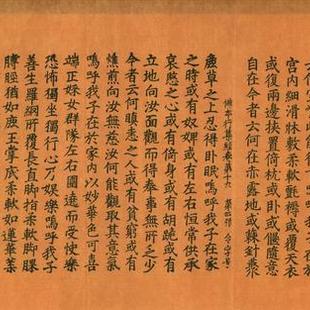 宮內細滑牀敷柔軟氈褥或覆天衣
或復兩邊挾置倚枕或卧或偃隨意
自在今者云何在赤露地或棘針藂
佛本行集經卷第十六 第四張
麁草之上忍得卧眠嗚呼我子在家
之時或有奴婢或有左右恒常供承
哀愍之心或有倚身或有胡跪或有
立地向汝面觀而得奉事無所乏少
今者云何瞋恚之人或有貧窮或有
燋煎向汝無慈汝何能觀取其意氣
嗚呼我子在於家內以妙華色可喜
端正婇女群隊左右圍遶而受快樂
恐怖獨坐獨行心乃娛樂嗚呼我子
善生羅網所覆長直脚指柔軟脚踝
膊脛猶如鹿王掌底柔軟如蓮華葉